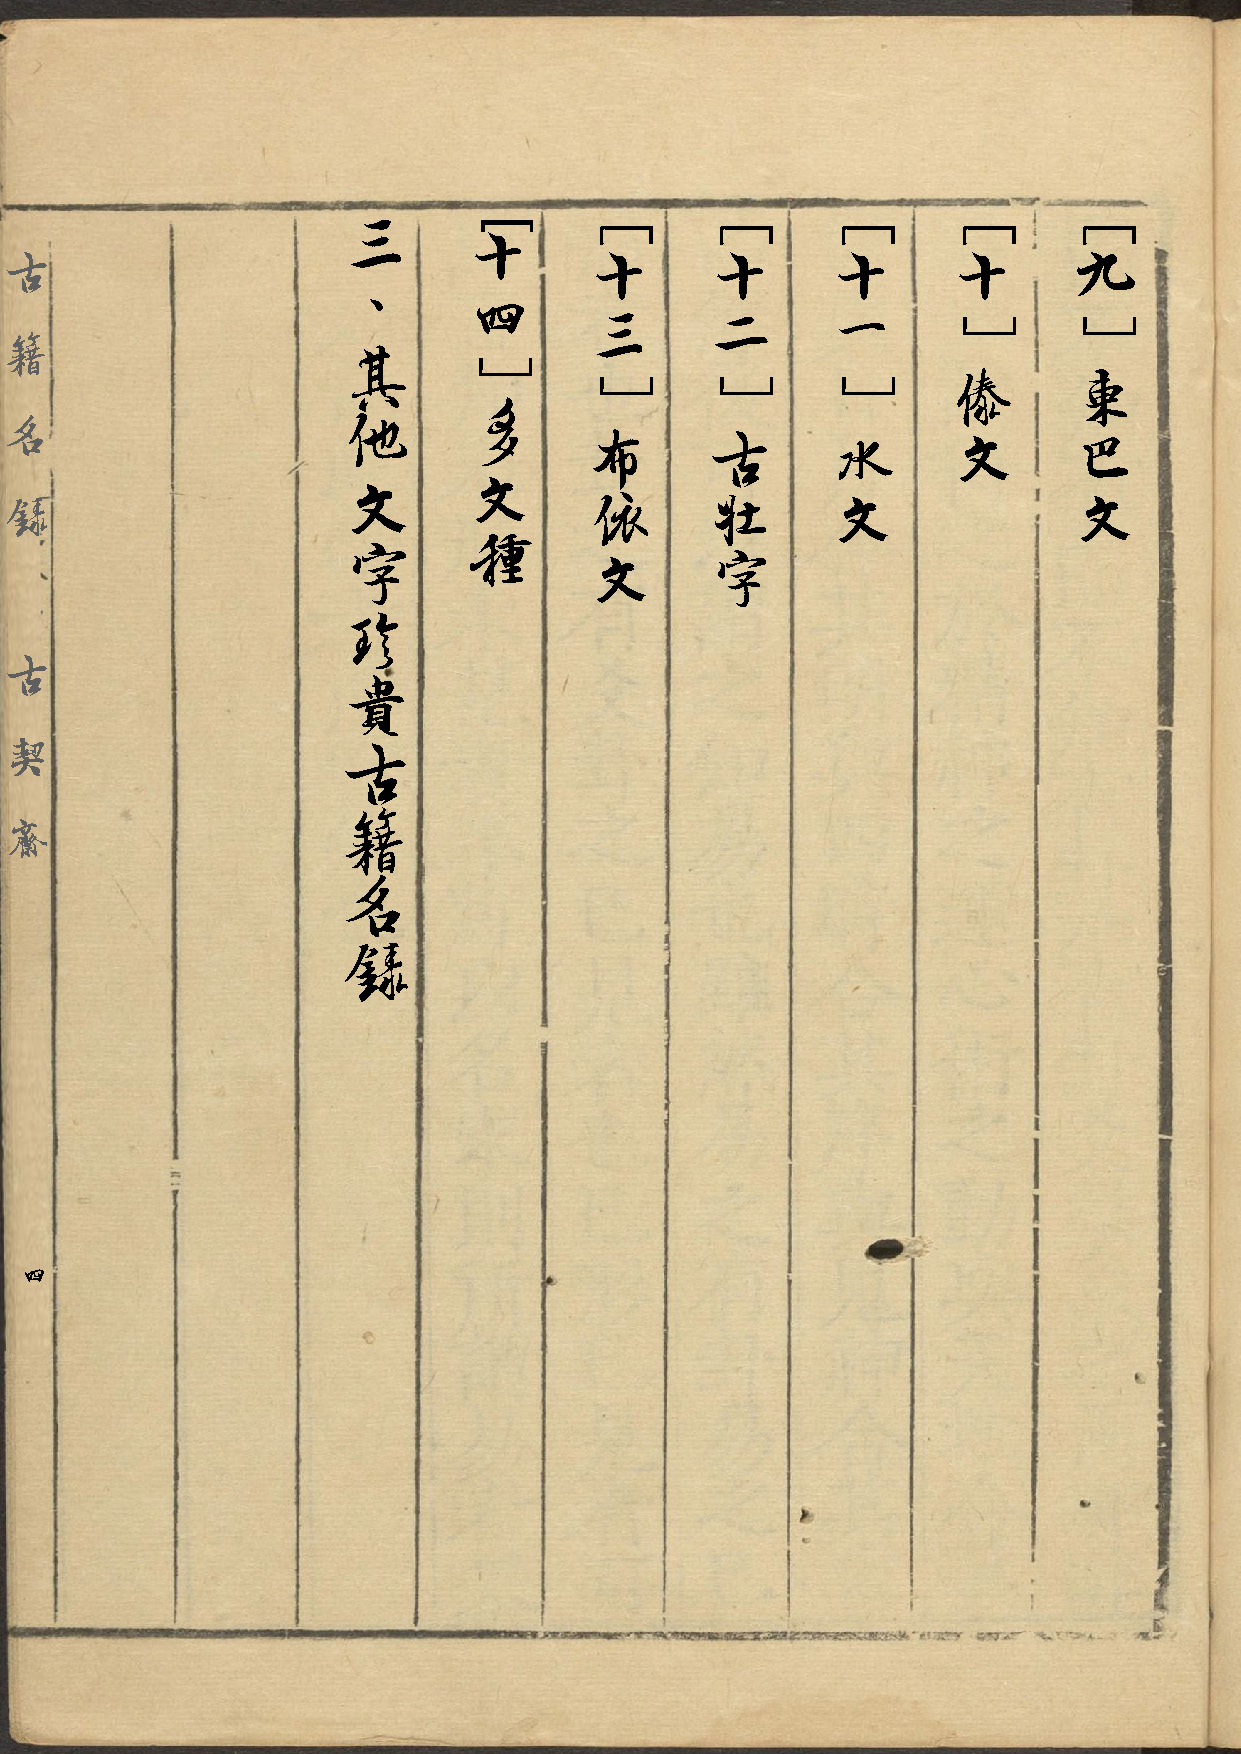 ［九］東巴文
［十］傣文
［十一］水文
［十二］古壯字
［十三］布依文
［十四］多文種
三、其他文字珍貴古籍名錄
古籍名錄、古契齋
四